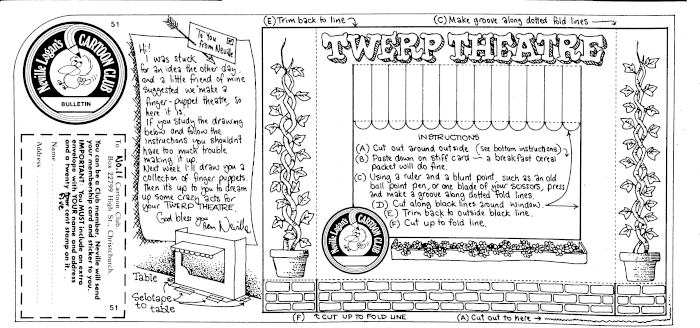 51
Neville Lodge's
CARTOON CLUB
BULLETIN
To No.11 Cartoon Club,
Box 22799 High St., Christchurch.
You can be a Club member. Neville will send
your membership card and sticker to you.
IMPORTANT: You MUST include an extra
envelope with YOUR name and address
and a twenty five cent stamp on it.
Name
Address
51
To You
from Neville
Hi!
I was stuck
for an idea the other day
and a little friend of mine
suggested we make a
finger-puppet theatre, so
here it is.
If you study the drawing
below and follow the
instructions you shouldn't
have too much trouble
making it up.
Next week I'll draw you a
collection of finger puppets.
Then it's up to you to dream
up some crazy acts for
your TWERP THEATRE.
God bless you
from Neville
Table
Selotape to
table
(E) Trim back to line
(C) Make groove along dotted fold lines
TWERP THEATRE
INSTRUCTIONS
(A) Cut out around outside (see bottom instructions)
(B) Paste down on stiff card – a breakfast cereal
packet will do fine.
(C) Using a ruler and a blunt point, such as an old
ball point pen, or one blade of your scissors, press
and make a groove along dotted fold lines.
(D) Cut along black lines around window.
(E) Trim back to outside black line.
(F) Cut up to fold line.
CARTOON CLUB
(F) CUT UP TO FOLD LINE
(A) Cut out to here